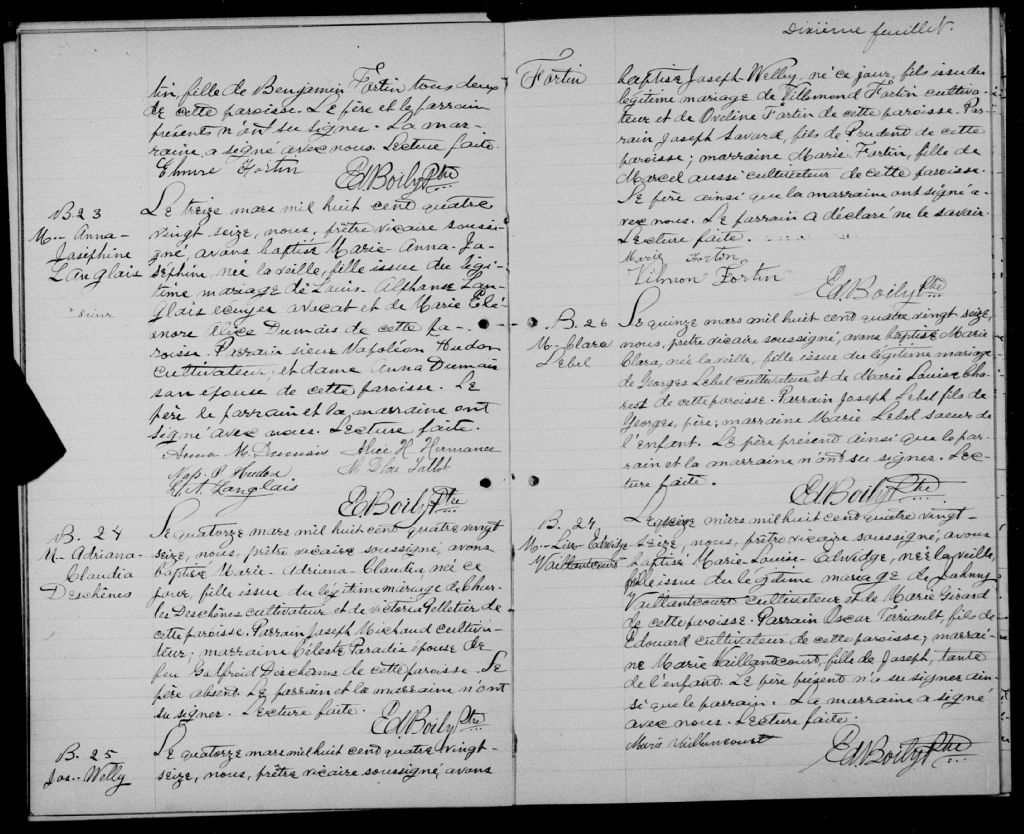 tin, fille de Benjamin Fortin tous deux
de cette paroisse. Le père et le parrain
présents n'ont su signer. La mar-
raine a signé avec nous. Lecture faite.
Elmire Fortin
Ed. Boily Ptre
B. 23
M.- Anna-
Joséphine
Langlais
Le treize mars mil huit cent quatre
vingt seize, nous, prêtre vicaire soussi-
gné, avons baptisé Marie-Anna-Jo-
séphine, née la veille, fille issue du légi-
time mariage de Louis-Alphonse Lan-
glais écuyer avocat et de Marie Élé-
nore Alice Dumais de cette pa-
roisse. Parrain sieur Napoléon Hudon
cultivateur, et dame Anna Dumais
son épouse de cette paroisse. Le
père le parrain et la marraine ont
signé avec nous. Lecture faite.
Anna M. Dumais Alice H. Hermance
Nap. P. Hudon
L. A. Langlais
Ed. Boily Ptre
B. 24
M.- Adriana-
Claudia
Deschênes
Le quatorze mars mil huit cent quatre vingt
seize, nous, prêtre vicaire soussigné, avons
baptisé Marie-Adriana-Claudia, née ce
jour, fille issue du légitime mariage de Char-
les Deschênes cultivateur et de Victoria Pelletier de
cette paroisse. Parrain Joseph Michaud cultiva-
teur; marraine Céleste Paradis épouse de
feu Godfroid Deschenes de cette paroisse. Le
père absent. Le parrain et la marraine n'ont
su signer. Lecture faite.
Ed. Boily Ptre
B. 25
Jos.- Welly
Le quatorze mars mil huit cent quatre vingt-
seize, nous, prêtre vicaire soussigné, avons
Dixième feuillet.
Fortin
baptisé Joseph-Welley, né ce jour, fils issu du
légitime mariage de Villemond Fortin cultiva-
teur et de Oveline Fortin de cette paroisse. Par-
rain Joseph Savard, fils de Prudent de cette
paroisse; marraine Marie Fortin, fille de
Marcel aussi cultivateur de cette paroisse.
Le père ainsi que la marraine ont signé a-
vec nous. Le parrain a déclaré ne le savoir.
Lecture faite.
Marie Fortin
Vilmon Fortin
Ed. Boily Ptre
B. 26
M.- Clara
Lebel
Le quinze mars mil huit cent quatre vingt seize,
nous, prêtre vicaire soussigné, avons baptisé Marie
Clara, née la veille, fille issue du légitime mariage
de Georges Lebel cultivateur et de Marie Louise Cha-
rest de cette paroisse. Parrain Joseph Lebel fils de
Georges, père; marraine Marie Lebel soeur de
l'enfant. Le père présent ainsi que le par-
rain et la marraine n'ont su signer. Lec-
ture faite.
Ed. Boily Ptre
B. 27
M.- Lise-Edwidge
Vaillantcourt
Le seize mars mil huit cent quatre vingt-
seize, nous, prêtre vicaire soussigné, avons
baptisé Marie-Louise-Edwidge, née la veille,
fille issue du légitime mariage de Johnny
Vaillantcourt cultivateur et de Marie Girard
de cette paroisse. Parrain Oscar Terriault, fils de
Edouard cultivateur de cette paroisse; marrai-
ne Marie Vaillantcourt, fille de Joseph, tante
de l'enfant. Le père présent n'a su signer ain-
si que le parrain. La marraine a signé
avec nous. Lecture faite.
Marie Vaillancourt
Ed. Boily Ptre